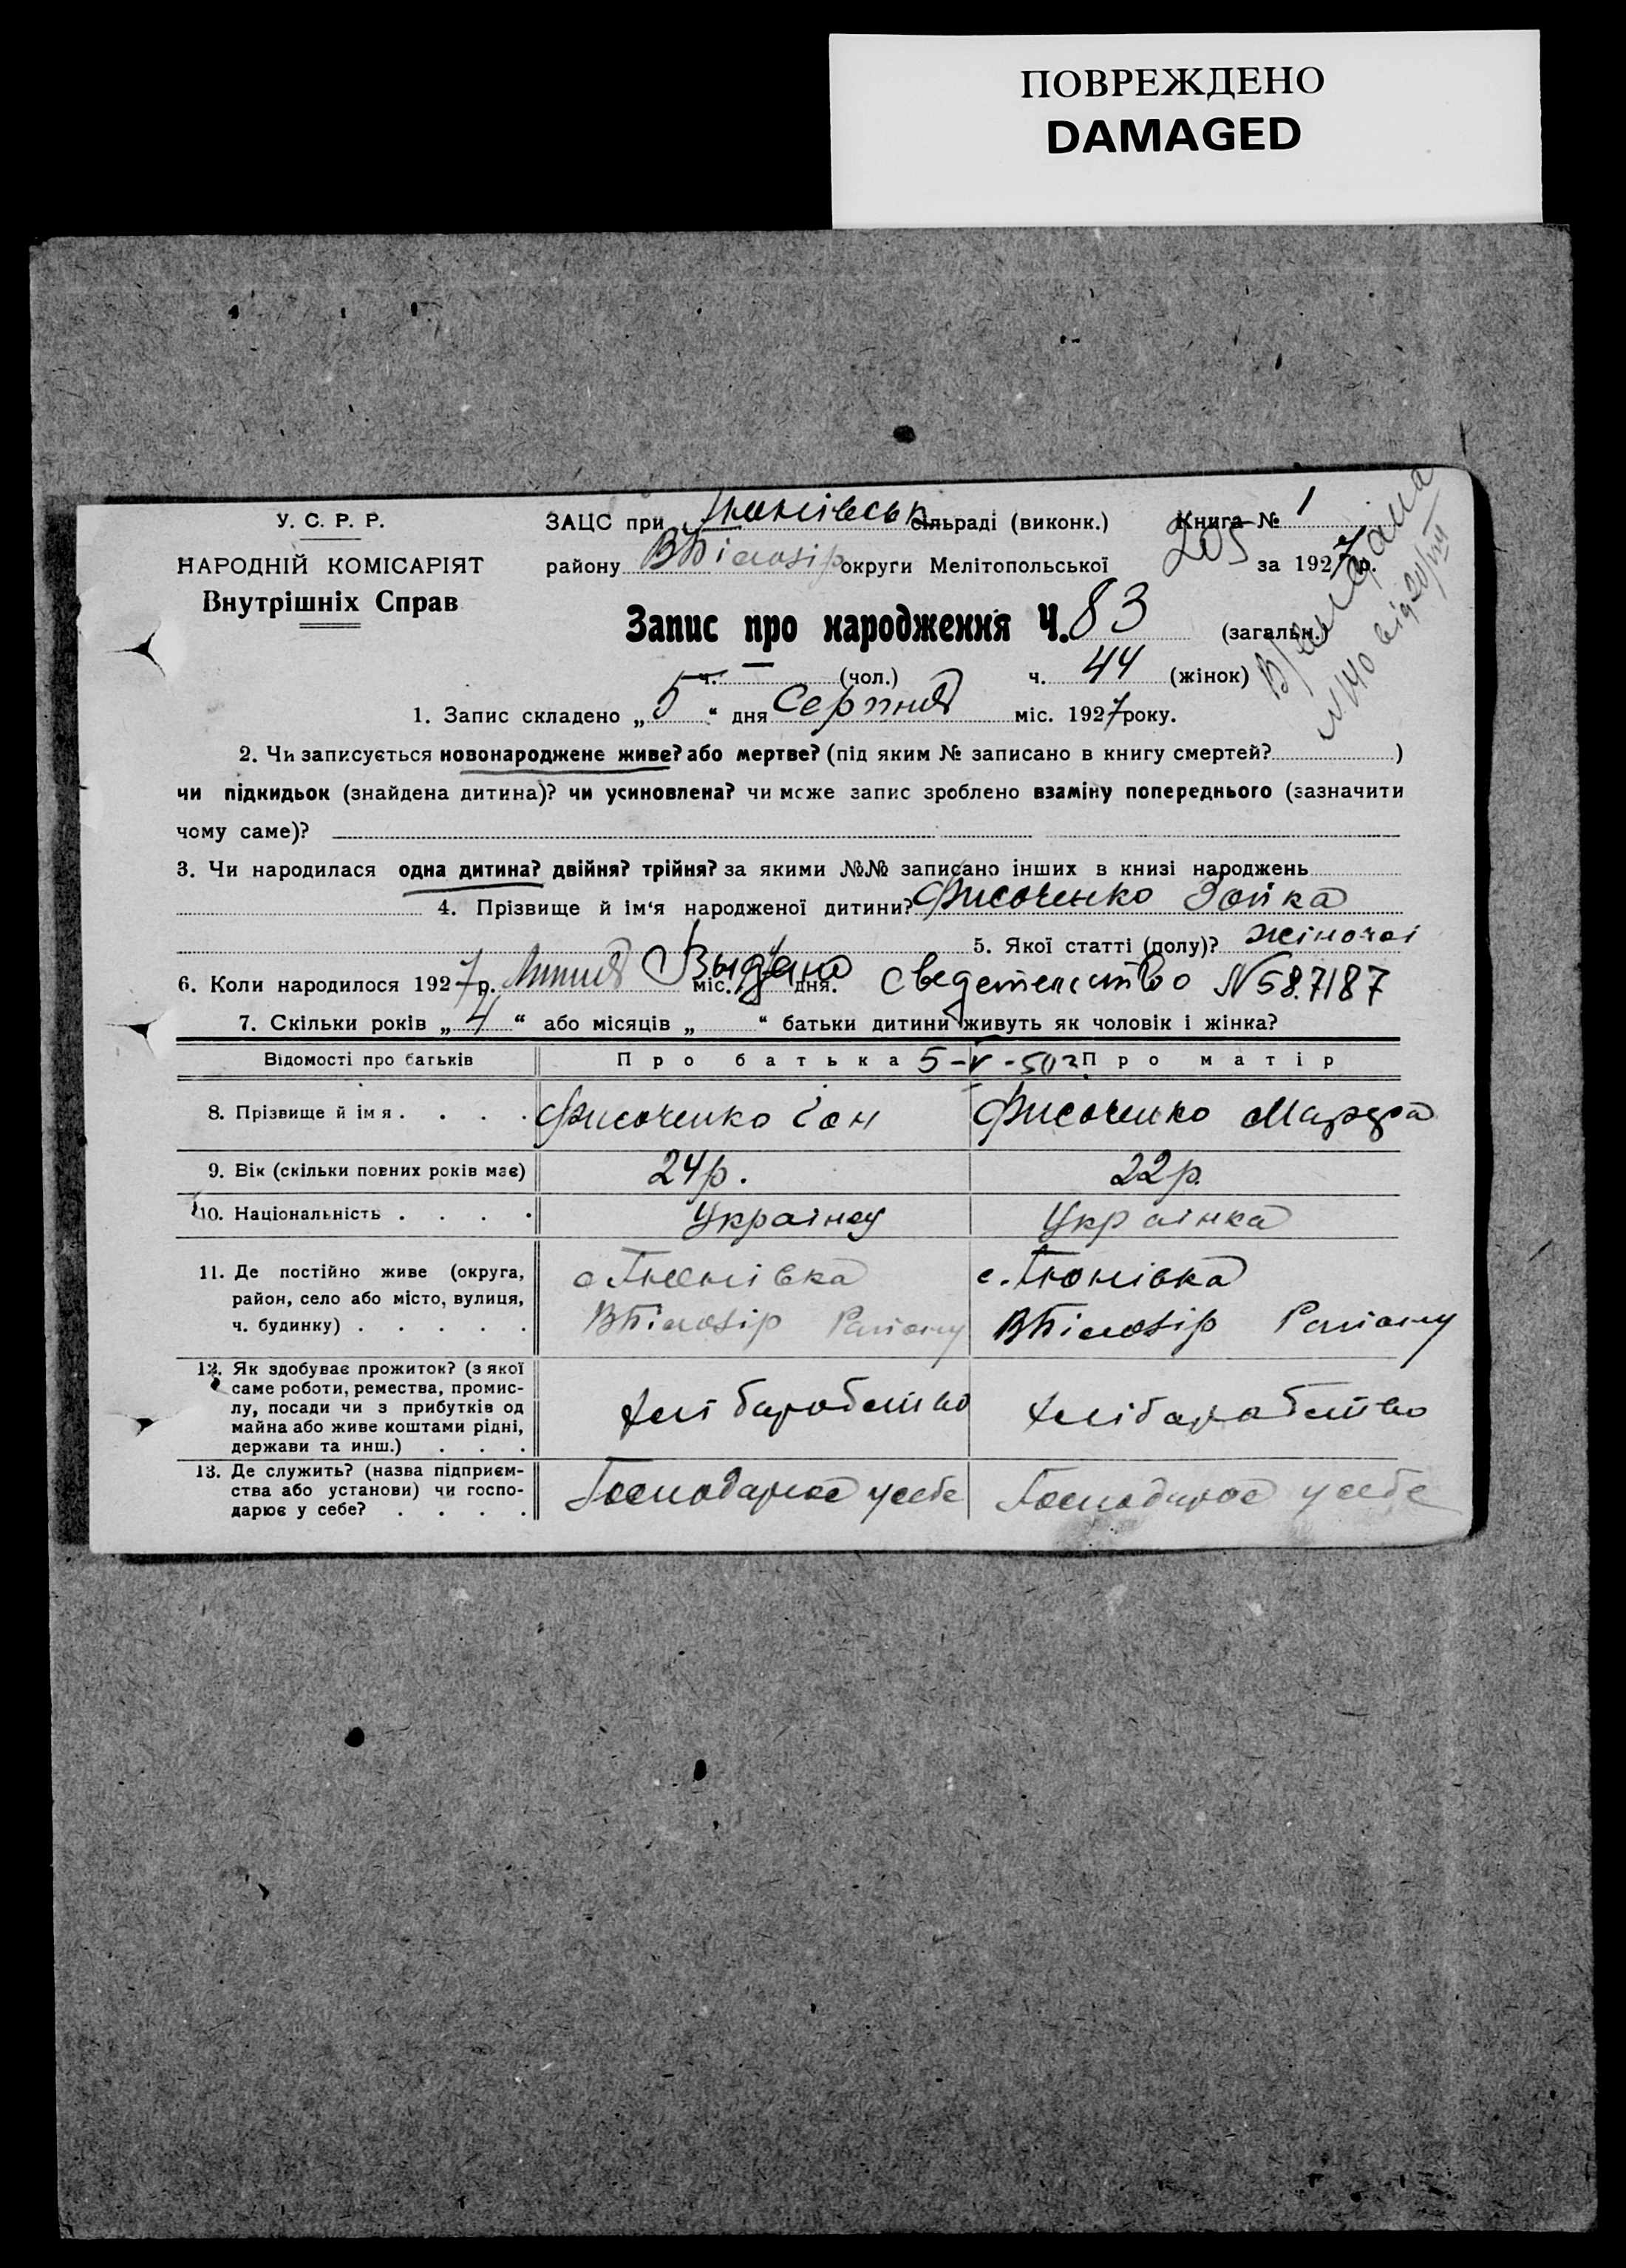 ПОВРЕЖДЕНО
DAMAGED
У. С. Р. Р.
НАРОДНІЙ КОМІСАРІЯТ
Внутрішніх Справ
ЗАЦС при Тюнівськ сільраді (виконк.) Книга № 1
району ВБілозір округи Мелітопольської 205 за 1927 р.
Запис про народження Ч. 83 (загальн.)
ч. — (чол.) ч. 44 (жінок)
№ 140 від 20/VII
1. Запис складено „5“ дня Серпня міс. 1927 року.
2. Чи записується новонароджене живе? або мертве? (під яким № записано в книгу смертей? )
чи підкидьок (знайдена дитина)? чи усиновлена? чи може запис зроблено взаміну попереднього (зазначити
чому саме)?
3. Чи народилася одна дитина? двійня? трійня? за якими №№ записано інших в книзі народжень
4. Прізвище й ім‘я народженої дитини? Фисоченко Зойка
5. Якої статті (полу)? жіночоі
6. Коли народилося 1927 р. Липня міс. дня. Выдано сведетельство № 587187
7. Скільки років „4“ або місяців „ “ батьки дитини живуть як чоловік і жінка?
Відомості про батьків Про батька 5-V-50г. Про матір
8. Прізвище й імя . . . . Фисоченко Фисоченко
9. Вік (скільки повних років має) 24р. 22р.
10. Національність . . . . Українец Українка
11. Де постійно живе (округа, район, село або місто, вулиця, ч. будинку) . . . . . с. Тюнівка ВБілозір Району с. Тюнівка ВБілозір Району
12. Як здобуває прожиток? (з якої саме роботи, ремества, промислу, посади чи з прибутків од майна або живе коштами рідні, держави та инш.) . . . хліборобство хліборобство
13. Де служить? (назва підприємства або установи) чи господарює у себе? . . . . Господарює у себе Господарює у себе